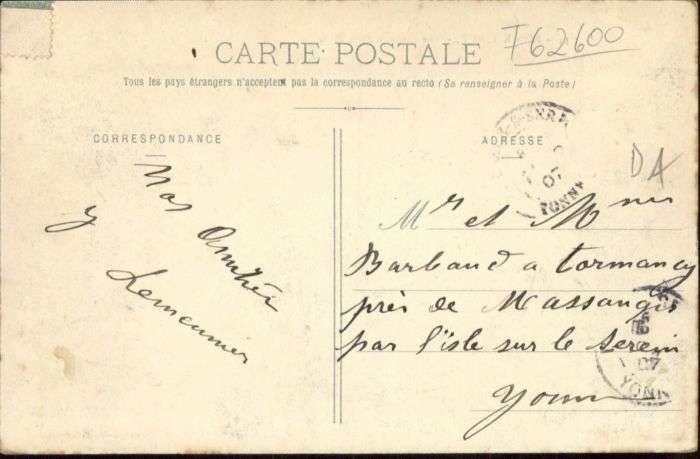 F62600
CARTE POSTALE
Tous les pays étrangers n'acceptent pas la correspondance au recto (Se renseigner à la Poste)
CORRESPONDANCE
Nos
Amitiés
Y Lemeunier
ADRESSE
DA
07
YONNE
Mr et Mmes
Barbaud a tormancy
près de Massangis
par l'isle sur le serein
Yonne
07
YONN